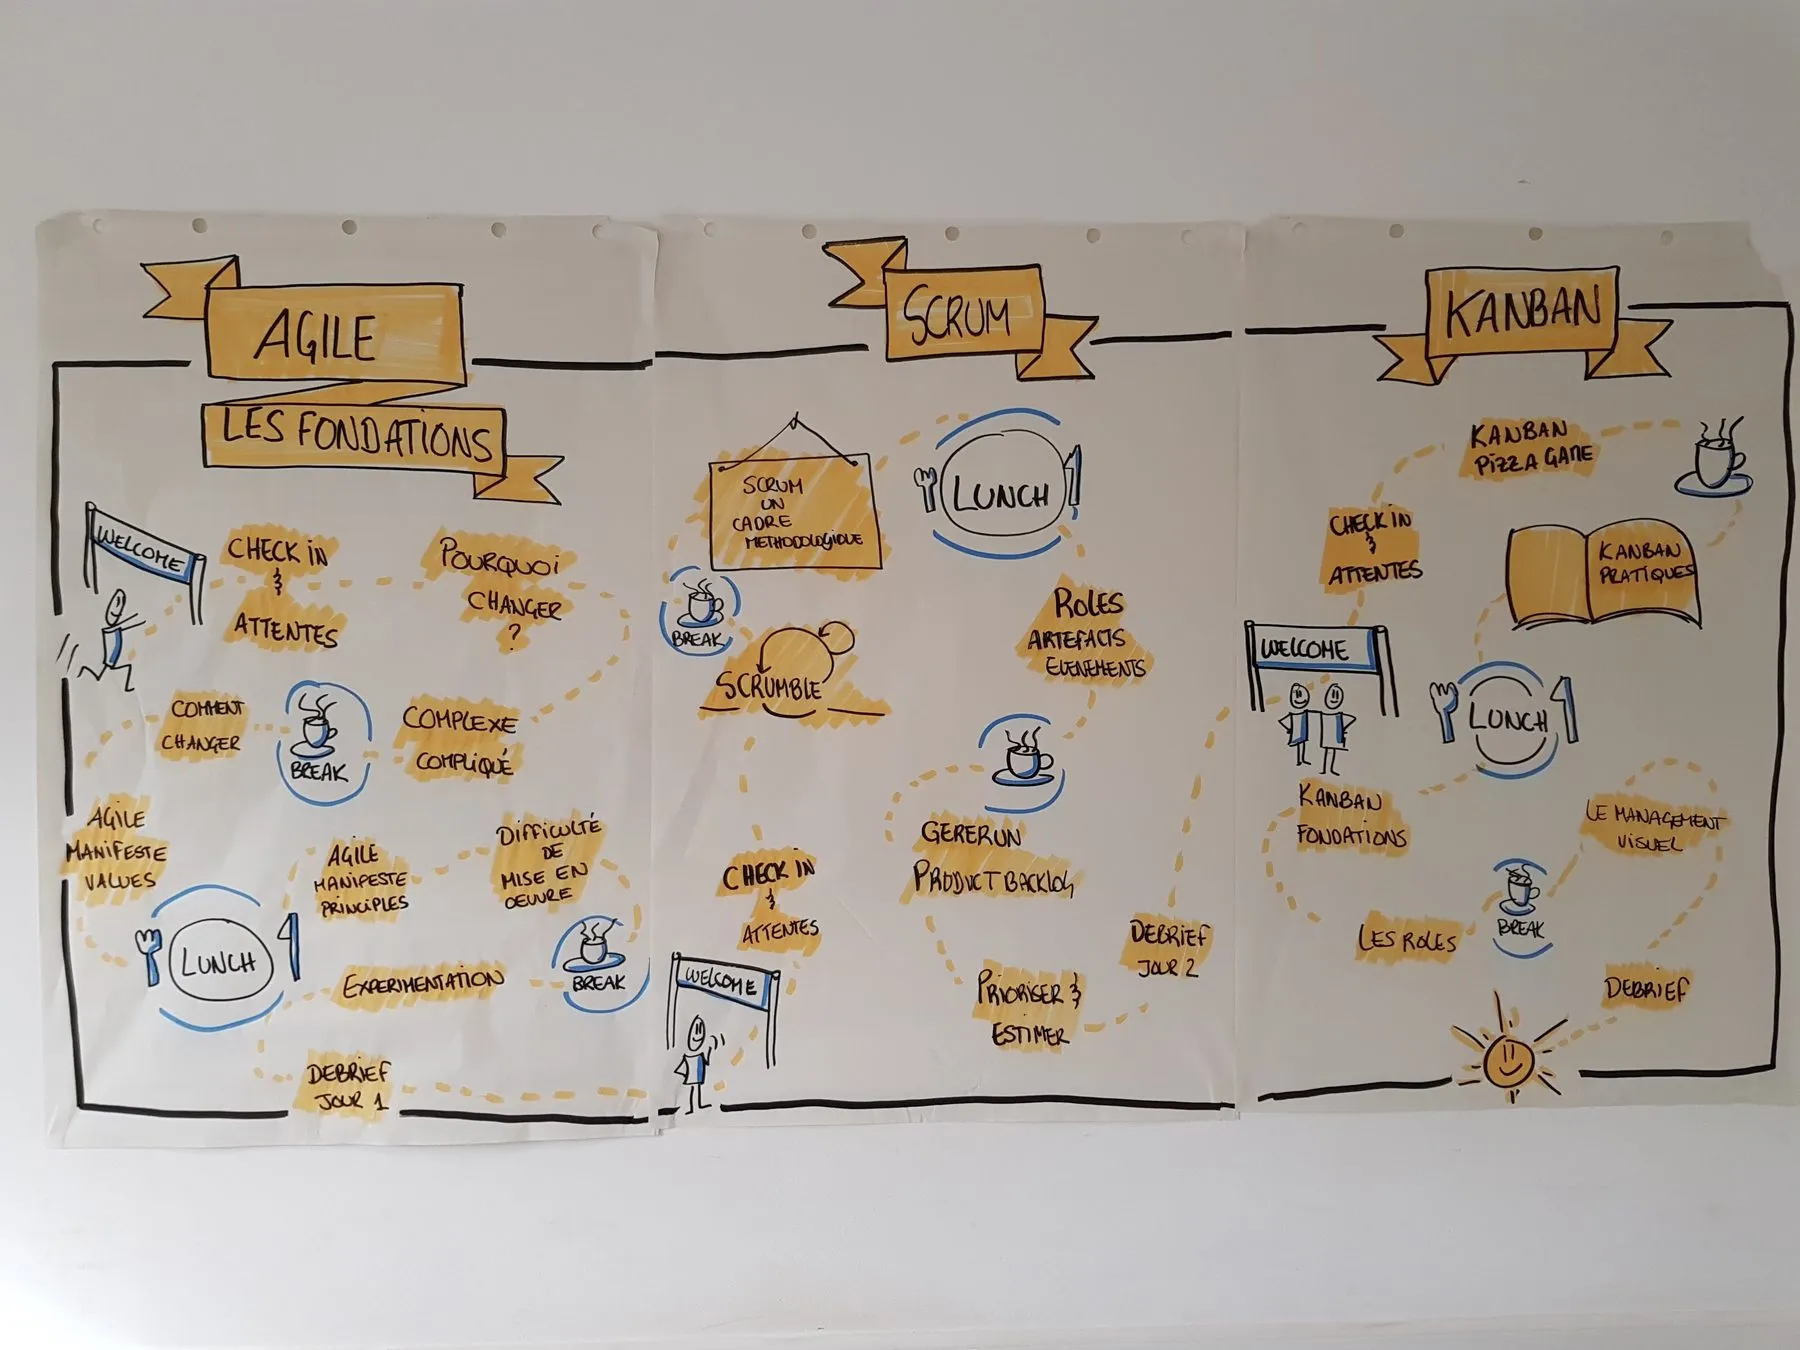 AGILE
LES FONDATIONS
WELCOME
CHECK iN
&
ATTENTES
POURQUOI
CHANGER
?
COMPLEXE
COMPLIQUÉ
BREAK
COMMENT
CHANGER
AGILE
MANIFESTE
VALUES
LUNCH
AGILE
MANIFESTE
PRINCIPLES
DIFFICULTÉ
DE
MISE EN
OEUVRE
BREAK
EXPERIMENTATION
DEBRIEF
JOUR 1
SCRUM
WELCOME
CHECK iN
&
ATTENTES
SCRUMBLE
BREAK
SCRUM
UN
CADRE
METHODOLOGIQUE
LUNCH
ROLES
ARTEFACTS
EVENEMENTS
GERER UN
PRODUCT BACKLOG
PRIORISER &
ESTIMER
DEBRIEF
JOUR 2
KANBAN
WELCOME
CHECK iN
&
ATTENTES
KANBAN
PIZZA GAME
KANBAN
PRATIQUES
LUNCH
KANBAN
FONDATIONS
LES ROLES
BREAK
LE MANAGEMENT
VISUEL
DEBRIEF